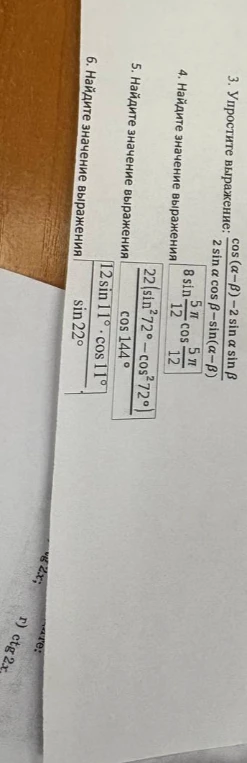 3. Упростите выражение: cos (α − β) − 2 sin α sin β / 2 sin α cos β − sin(α − β)
4. Найдите значение выражения 8 sin 5 π / 12 cos 5 π / 12
5. Найдите значение выражения 22(sin² 72° − cos² 72°) / cos 144°
6. Найдите значение выражения 12 sin 11° · cos 11° / sin 22°
г) ctg 2x